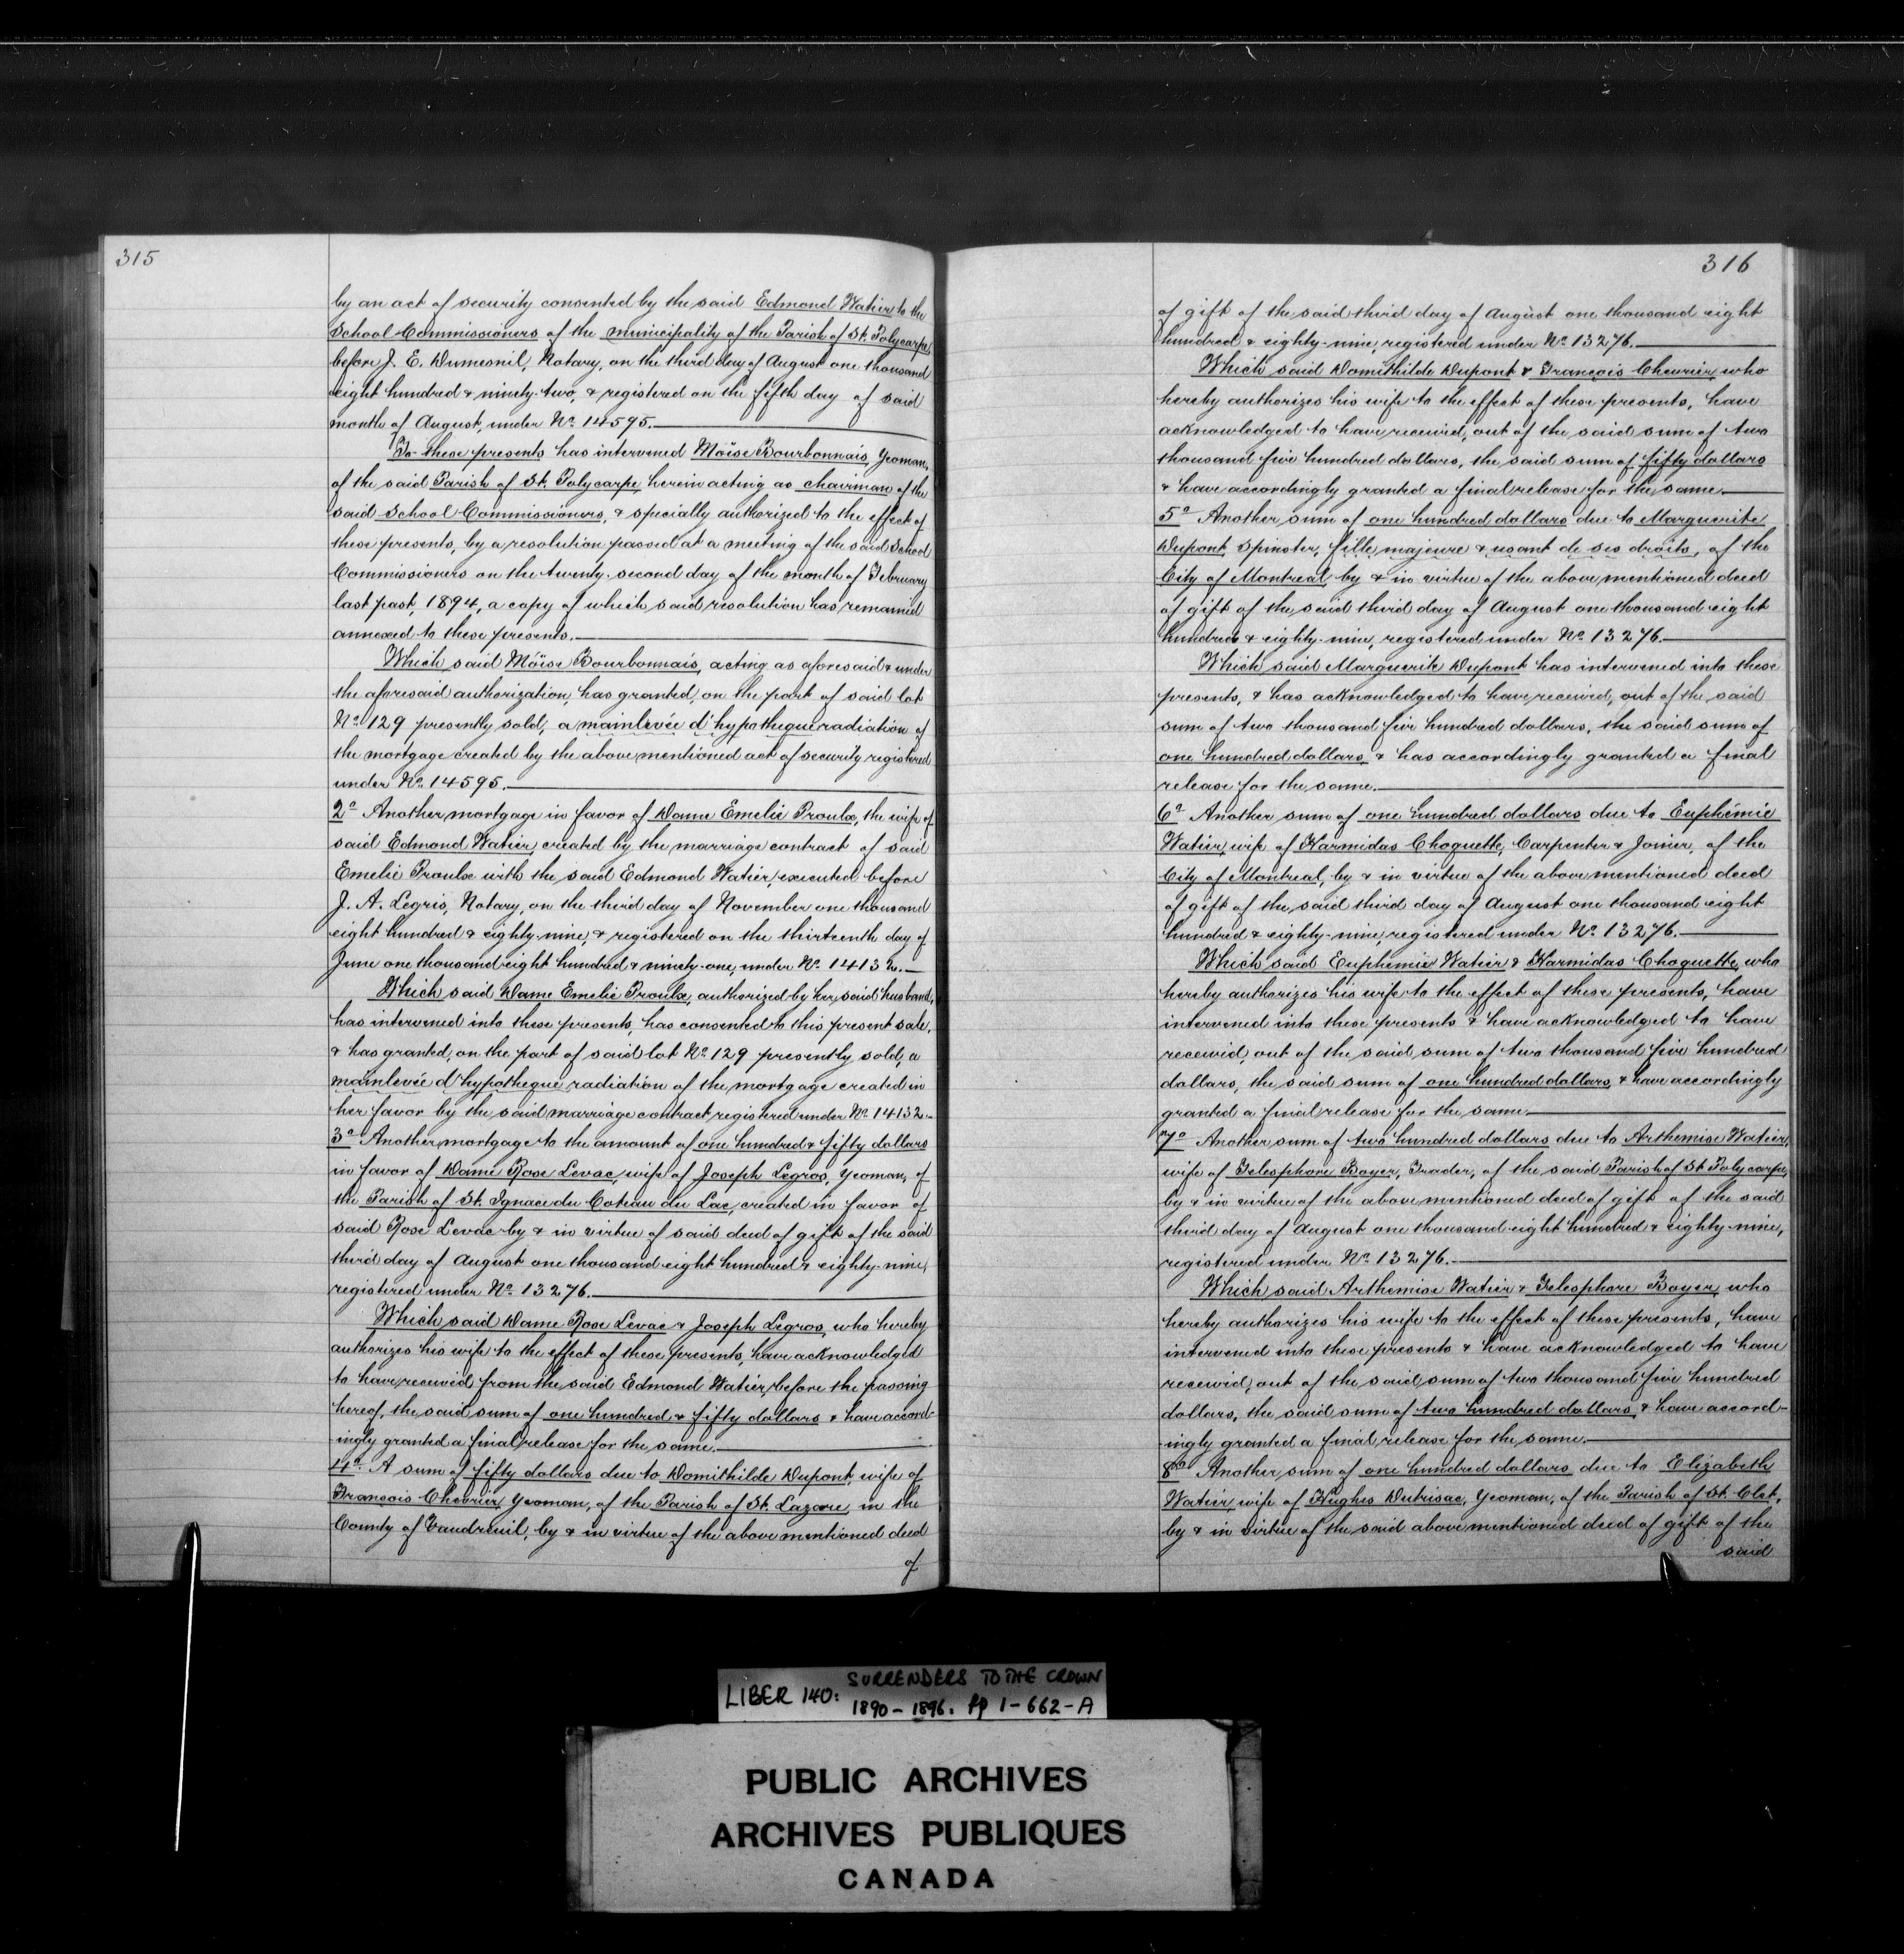 315
by an act of security consented by the said Edmond Watier to the
School Commissioners of the municipality of the Parish of St. Polycarpe,
before J. E. Dumesnil, Notary, on the third day of August one thousand
eight hundred & ninety-two, & registered on the fifth day of said
month of August, under No. 14595.
To these presents has intervened Möise Bourbonnais, Yeoman,
of the said Parish of St. Polycarpe, herein acting as chairman of the
said School Commissioners, & specially authorized to the effect of
these presents, by a resolution passed at a meeting of the said School
Commissioners on the twenty-second day of the month of February
last past, 1894, a copy of which said resolution has remained
annexed to these presents.
Which said Möise Bourbonnais, acting as aforesaid & under
the aforesaid authorization, has granted, on the part of said lot
No. 129 presently sold, a mainlevée d'hypotheque radiation of
the mortgage created by the above mentioned act of security registered
under No. 14595.
2o Another mortgage in favor of Dame Emelie Proulx, the wife of
said Edmond Watier, created by the marriage contract of said
Emelie Proulx with the said Edmond Watier, executed before
J. A. Legris, Notary, on the third day of November one thousand
eight hundred & eighty-nine, & registered on the thirteenth day of
June one thousand eight hundred & ninety-one, under No. 14132.
Which said Dame Emelie Proulx, authorized by her said husband,
has intervened into these presents, has consented to this present sale,
& has granted, on the part of said lot No. 129 presently sold, a
mainlevée d'hypotheque radiation of the mortgage created in
her favor by the said marriage contract registered under No. 14132.
3o Another mortgage to the amount of one hundred & fifty dollars
in favor of Dame Rose Levac, wife of Joseph Legros, Yeoman, of
the Parish of St. Ignace du Coteau du Lac, created in favor of
said Rose Levac by & in virtue of said deed of gift of the said
third day of August one thousand eight hundred & eighty-nine,
registered under No. 13276.
Which said Dame Rose Levac & Joseph Legros, who hereby
authorizes his wife to the effect of these presents, have acknowledged
to have received from the said Edmond Watier, before the passing
hereof, the said sum of one hundred & fifty dollars & have accord-
-ingly granted a final release for the same.
4o A sum of fifty dollars due to Domithilde Dupont, wife of
Francois Chevrier, Yeoman, of the Parish of St. Lazare, in the
County of Vaudreuil, by & in virtue of the above mentioned deed
of
316
of gift of the said third day of August one thousand eight
hundred & eighty-nine, registered under No. 13276.
Which said Domithilde Dupont & François Chevrier, who
hereby authorizes his wife to the effect of these presents, have
acknowledged to have received, out of the said sum of two
thousand five hundred dollars, the said sum of fifty dollars
& have accordingly granted a final release for the same.
5o Another sum of one hundred dollars due to Marguerite
Dupont, Spinster, fille majeure & usant de ses droits, of the
City of Montreal, by & in virtue of the above mentioned deed
of gift of the said third day of August one thousand eight
hundred & eighty-nine, registered under No. 13276.
Which said Marguerite Dupont has intervened into these
presents, & has acknowledged to have received, out of the said
sum of two thousand five hundred dollars, the said sum of
one hundred dollars, & has accordingly granted a final
release for the same.
6o Another sum of one hundred dollars due to Euphémie
Watier, wife of Harmidas Choquette, Carpenter & Joiner, of the
City of Montreal, by & in virtue of the above mentioned deed
of gift of the said third day of August one thousand eight
hundred & eighty-nine, registered under No. 13276.
Which said Euphemie Watier & Harmidas Choquette, who
hereby authorizes his wife to the effect of these presents, have
intervened into these presents & have acknowledged to have
received, out of the said sum of two thousand five hundred
dollars, the said sum of one hundred dollars, & have accordingly
granted a final release for the same.
7o Another sum of two hundred dollars due to Arthemise Watier,
wife of Telesphore Boyer, Trader, of the said Parish of St. Polycarpe,
by & in virtue of the above mentioned deed of gift of the said
third day of August one thousand eight hundred & eighty-nine,
registered under No. 13276.
Which said Arthemise Watier & Telesphore Boyer, who
hereby authorizes his wife to the effect of these presents, have
intervened into these presents & have acknowledged to have
received, out of the said sum of two thousand five hundred
dollars, the said sum of two hundred dollars, & have accord-
-ingly granted a final release for the same.
8o Another sum of one hundred dollars due to Elizabeth
Watier, wife of Hughes Dutrisac, Yeoman, of the Parish of St. Clet,
by & in virtue of the said above mentioned deed of gift of the
said
LIBER 140: SURRENDERS TO THE CROWN
1890-1896. pp 1-662-A
PUBLIC ARCHIVES
ARCHIVES PUBLIQUES
CANADA